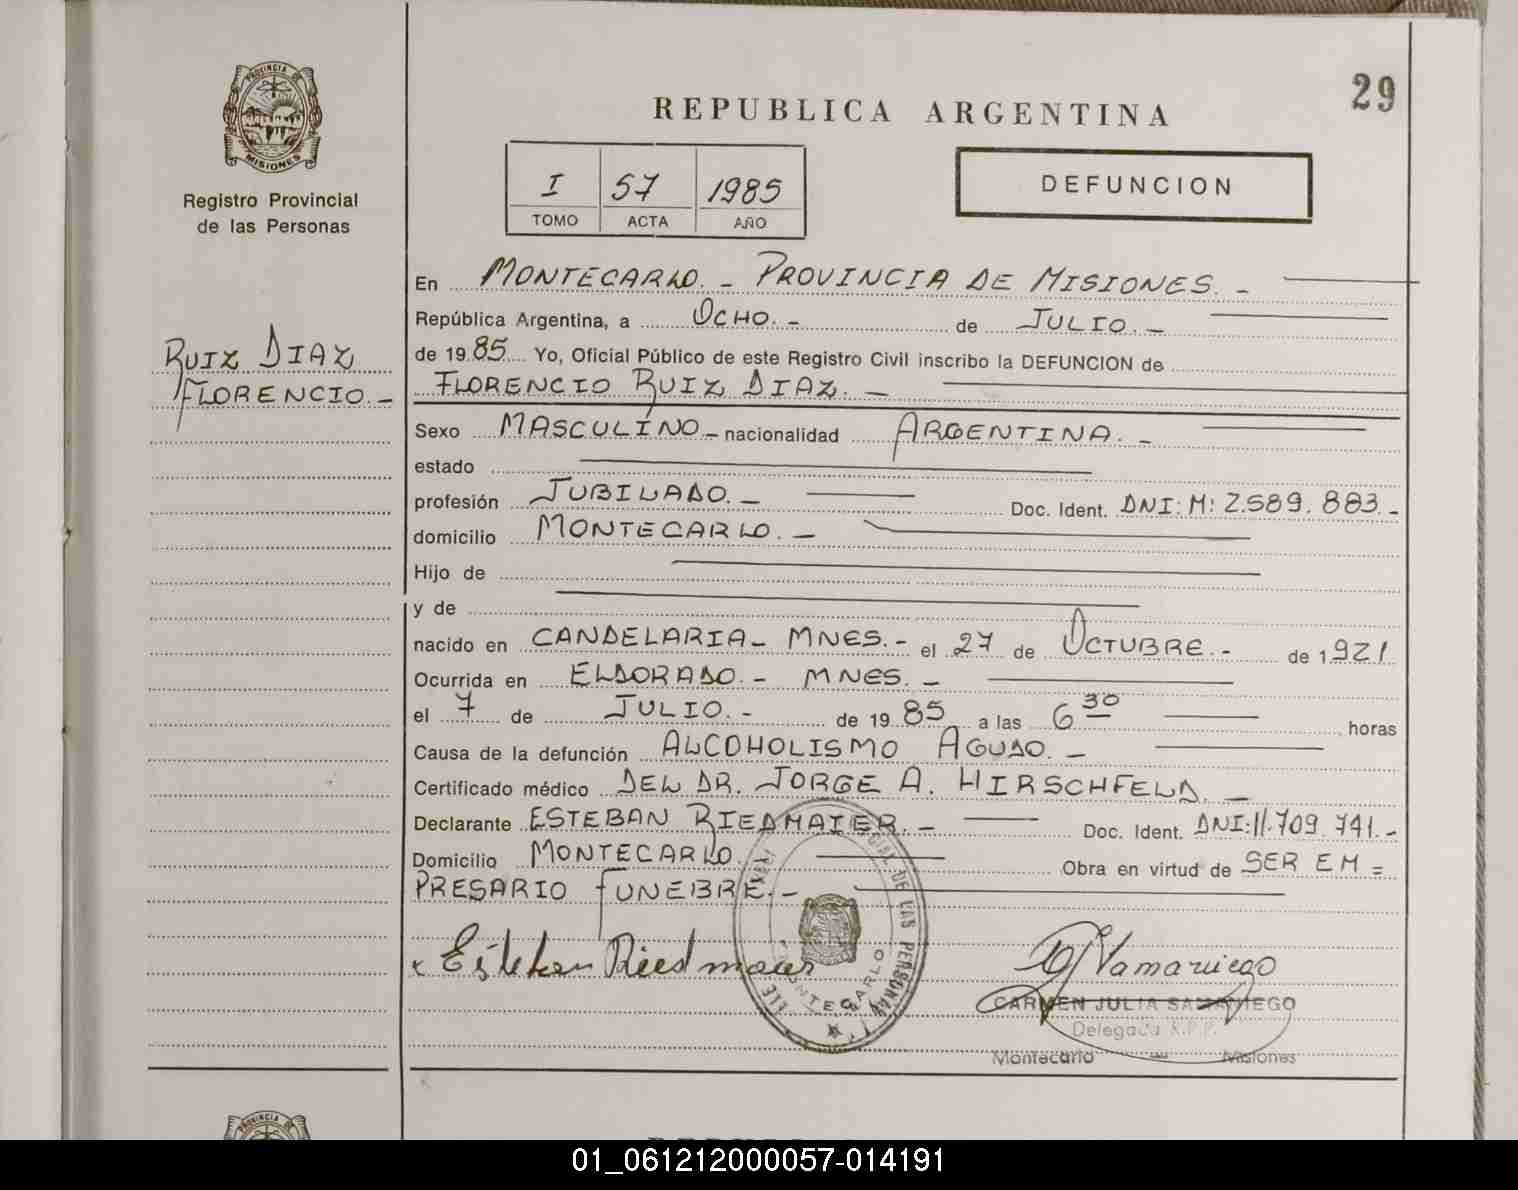 29
PROVINCIA DE
MISIONES
REPUBLICA ARGENTINA
Registro Provincial
de las Personas
I 57 1985
TOMO ACTA AÑO
DEFUNCION
RUIZ DIAZ
FLORENCIO.-
En MONTECARLO.- PROVINCIA DE MISIONES.-
República Argentina, a OCHO.- de JULIO.-
de 1985 Yo, Oficial Público de este Registro Civil inscribo la DEFUNCION de
FLORENCIO RUIZ DIAZ.-
Sexo MASCULINO- nacionalidad ARGENTINA.-
estado
profesión JUBILADO.- Doc. Ident. DNI: M: 2.589.883.-
domicilio MONTECARLO.-
Hijo de
y de
nacido en CANDELARIA- MNES.- el 27 de OCTUBRE.- de 1921
Ocurrida en ELDORADO.- MNES.-
el 7 de JULIO.- de 1985 a las 6 30 horas
Causa de la defunción ALCOHOLISMO AGUDO.-
Certificado médico DEL DR. JORGE A. HIRSCHFELD.-
Declarante ESTEBAN RIEDMAIER.- Doc. Ident. DNI: 11.709.741.-
Domicilio MONTECARLO. Obra en virtud de SER EM=
PRESARIO FUNEBRE.-
x Esteban Riedmaier
DE LAS PERSONAS
MONTECARLO
CARMEN JULIA SAMANIEGO
Delegada R.P.P.
Montecarlo - Misiones
PROVINCIA DE
01_061212000057-014191